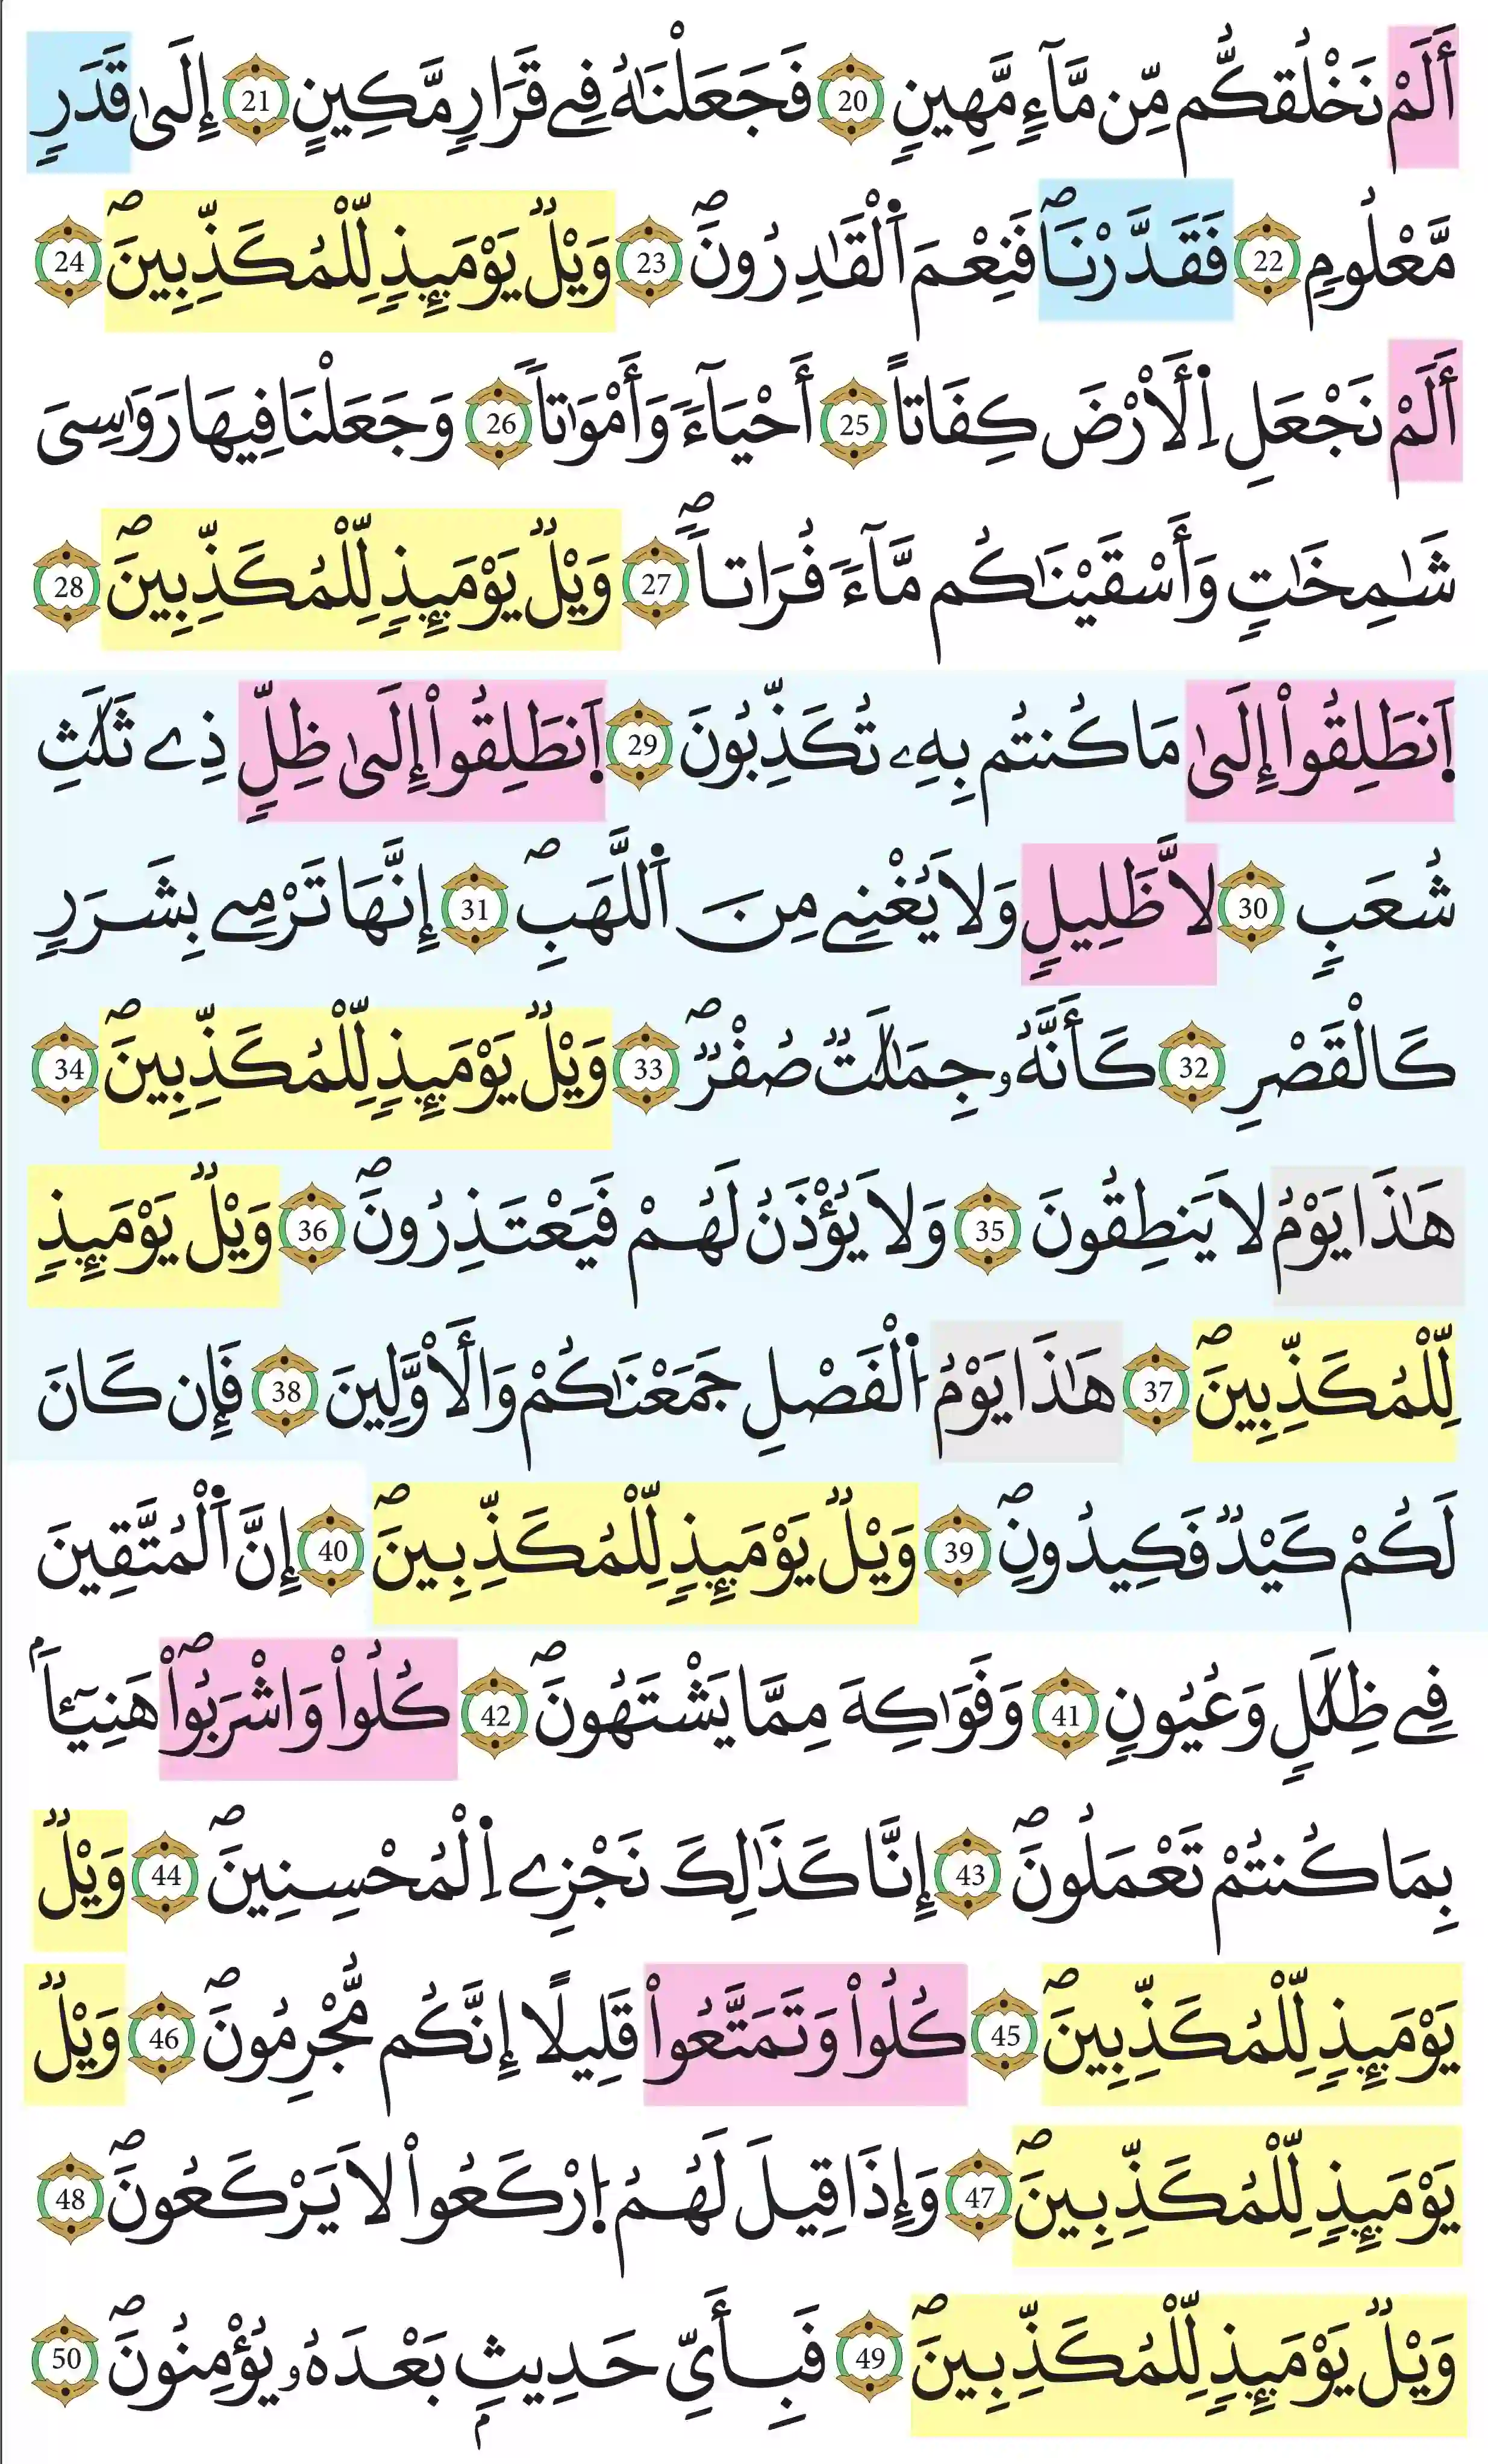 أَلَمْ نَخْلُقكُّم مِّن مَّآءٍ مَّهِينٍ 20 فَجَعَلْنَٰهُ فِے قَرَارٍ مَّكِينٍ 21 إِلَىٰ قَدَرٍ
مَّعْلُومٍ 22 فَقَدَّرْنَاۖ فَنِعْمَ اَ۬لْقَٰدِرُونَۖ 23 وَيْلٌ يَوْمَئِذٍ لِّلْمُكَذِّبِينَۖ 24
أَلَمْ نَجْعَلِ اِ۬لَارْضَ كِفَاتاً 25 أَحْيَآءً وَأَمْوَٰتاً 26 وَجَعَلْنَا فِيهَا رَوَٰسِىَ
شَٰمِخَٰتٍ وَأَسْقَيْنَٰكُم مَّآءً فُرَاتاًۖ 27 وَيْلٌ يَوْمَئِذٍ لِّلْمُكَذِّبِينَۖ 28
اَ۪نطَلِقُوٓاْ إِلَىٰ مَا كُنتُم بِهِۦ تُكَذِّبُونَ 29 اَ۪نطَلِقُوٓاْ إِلَىٰ ظِلٍّ ذِے ثَلَٰثِ
شُعَبٍ 30 لَّا ظَلِيلٍ وَلَا يُغْنِے مِنَ اَ۬للَّهَبِۖ 31 إِنَّهَا تَرْمِے بِشَرَرٍ
كَالْقَصْرِ 32 كَأَنَّهُۥ جِمَٰلَٰتٌ صُفْرٌۖ 33 وَيْلٌ يَوْمَئِذٍ لِّلْمُكَذِّبِينَۖ 34
هَٰذَا يَوْمُ لَا يَنطِقُونَ 35 وَلَا يُؤْذَنُ لَهُمْ فَيَعْتَذِرُونَۖ 36 وَيْلٌ يَوْمَئِذٍ
لِّلْمُكَذِّبِينَۖ 37 هَٰذَا يَوْمُ اُ۬لْفَصْلِ جَمَعْنَٰكُمْ وَالَاوَّلِينَ 38 فَإِن كَانَ
لَكُمْ كَيْدٌ فَكِيدُونِۖ 39 وَيْلٌ يَوْمَئِذٍ لِّلْمُكَذِّبِينَۖ 40 إِنَّ اَ۬لْمُتَّقِينَ
فِے ظِلَٰلٍ وَعُيُونٍ 41 وَفَوَٰكِهَ مِمَّا يَشْتَهُونَۖ 42 كُلُواْ وَاشْرَبُواْۖ هَنِيٓـٔاَۢ
بِمَا كُنتُمْ تَعْمَلُونَۖ 43 إِنَّا كَذَٰلِكَ نَجْزِے اِ۬لْمُحْسِنِينَۖ 44 وَيْلٌ
يَوْمَئِذٍ لِّلْمُكَذِّبِينَۖ 45 كُلُواْ وَتَمَتَّعُواْ قَلِيلًا إِنَّكُم مُّجْرِمُونَۖ 46 وَيْلٌ
يَوْمَئِذٍ لِّلْمُكَذِّبِينَۖ 47 وَإِذَا قِيلَ لَهُمُ اُ۪رْكَعُواْ لَا يَرْكَعُونَۖ 48
وَيْلٌ يَوْمَئِذٍ لِّلْمُكَذِّبِينَۖ 49 فَبِأَيِّ حَدِيثِۢ بَعْدَهُۥ يُؤْمِنُونَۖ 50